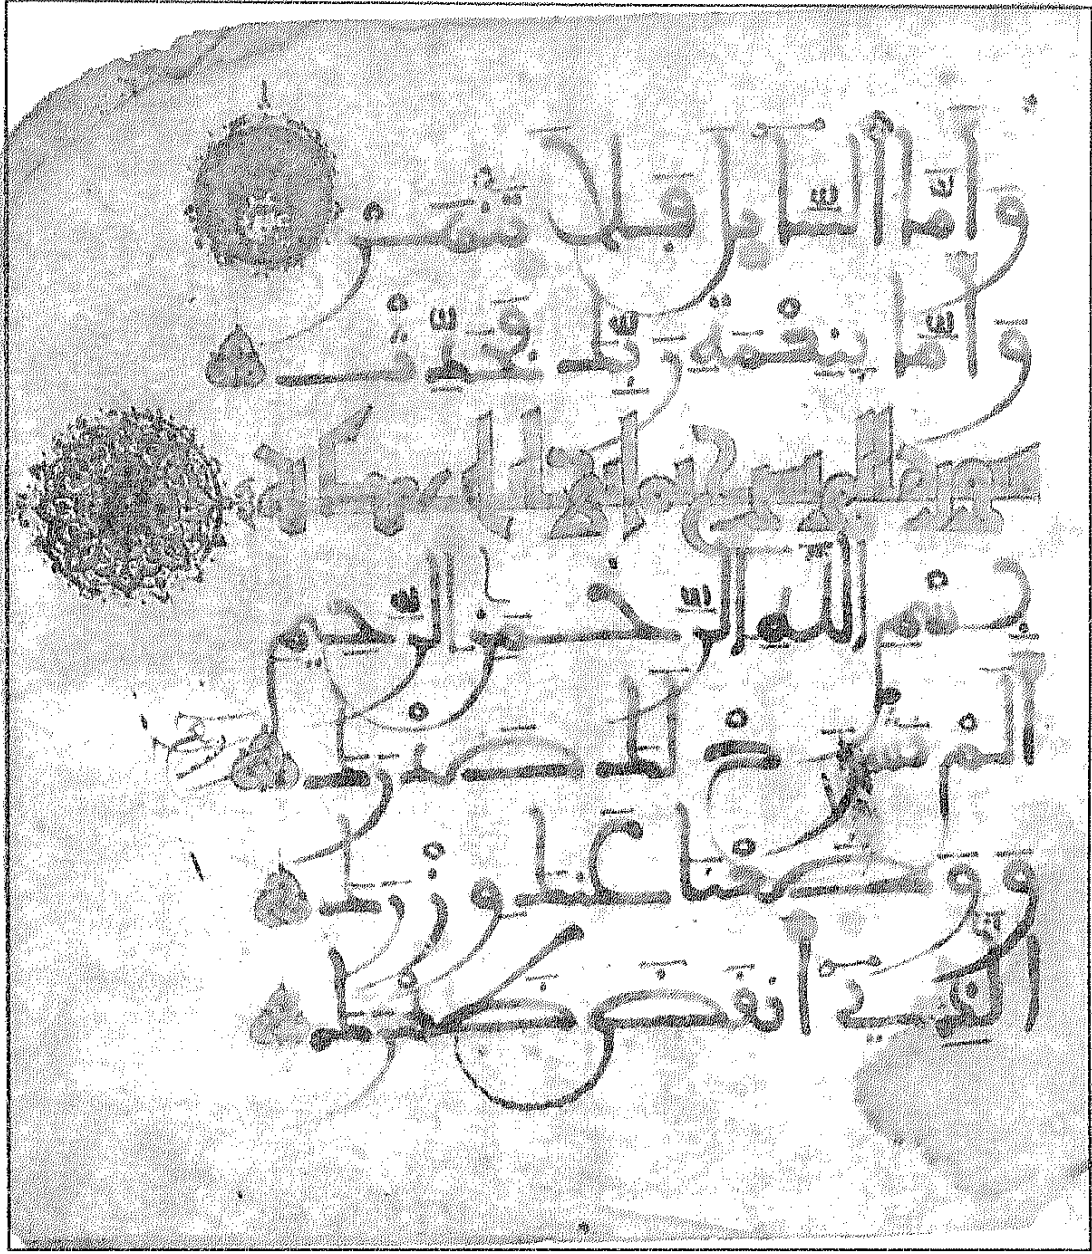 وَأَمَّا السَّايِلَ فَلَا تَنْهَرْ
وَأَمَّا بِنِعْمَةِ رَبِّكَ فَحَدِّثْ
سورة
بِسْمِ اللَّهِ الرَّحْمَنِ الرَّحِيمِ
أَلَمْ نَشْرَحْ لَكَ صَدْرَكَ
وَوَضَعْنَا عَنكَ وِزْرَكَ
الَّذِي أَنقَضَ ظَهْرَكَ